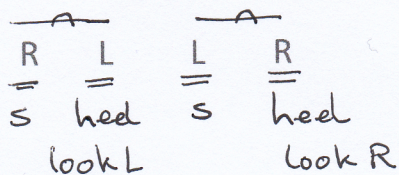 R L L R
s heel s heel
look L look R